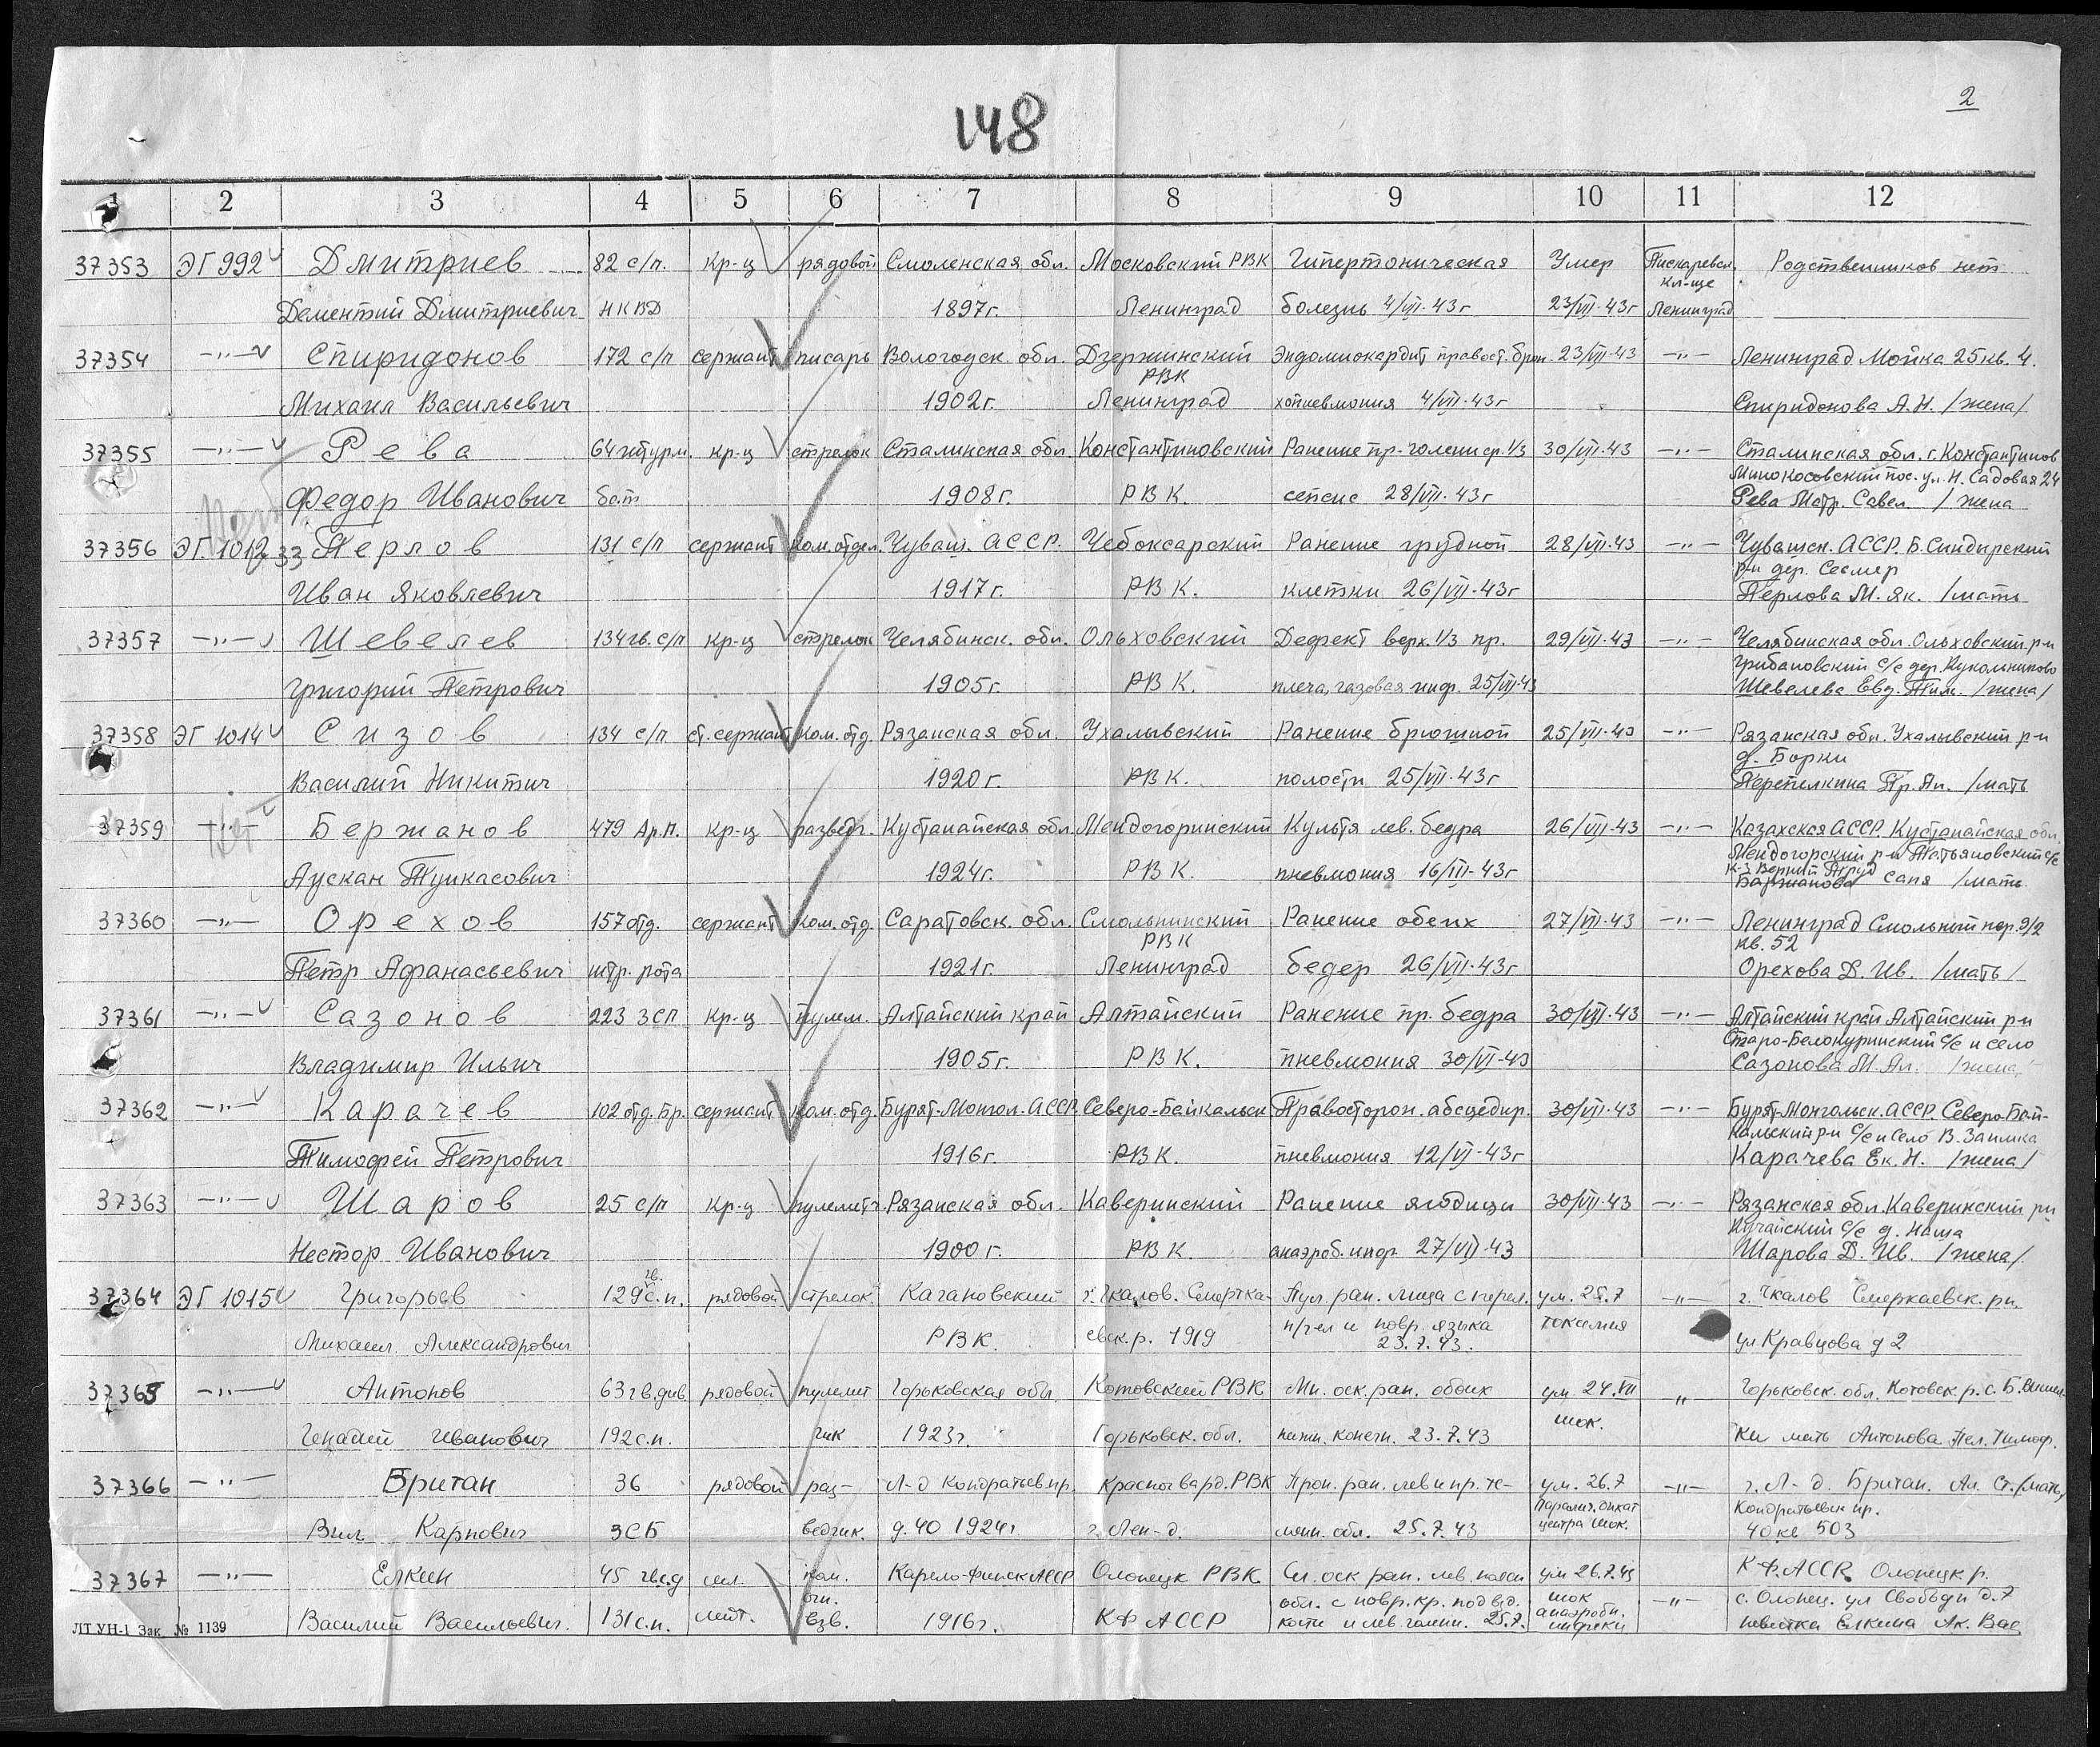 2
148
1 2 3 4 5 6 7 8 9 10 11 12
37353 ЭГ 992 Дмитриев 82 с/п. кр-ц рядовой Смоленская обл. Московский РВК Гипертоническая Умер Пискаревск. кл-ще Родственников нет
Дементий Дмитриевич НКВД 1897г. Ленинград болезнь 4/VII-43г 23/VII-43г Ленинград
37354 -"- Спиридонов 172 с/п сержант писарь Вологодск. обл. Дзержинский РВК Эндомиокардит правост. брон 23/VII-43 -"- Ленинград Мойка 25 кв. 4.
Михаил Васильевич 1902г. Ленинград хопневмония 4/VII-43г Спиридонова А.Н. /жена/
37355 -"- Рева 64 штурм. кр-ц стрелок Сталинская обл. Константиновский Ранение пр. голени ср. 1/3 30/VII-43 -"- Сталинская обл. г. Константинов
пос. ул. Н. Садовая 24
Федор Иванович бат 1908г. РВК. сепсис 28/VII-43г Рева Матр. Савел. /жена
37356 ЭГ 1012 33 Перлов 131 с/п сержант ком. отдел. Чуваш. АССР. Чебоксарский Ранение грудной 28/VII-43 -"- Чувашск. АССР. Б. Сундырский
р-н дер. Сесмер
Иван Яковлевич 1917г. РВК. клетки 26/VII-43г Перлова М. Як. /мать
37357 -"- Шевелев 134 гв. с/п кр-ц стрелок Челябинск. обл. Ольховский Дефект верх. 1/3 пр. 29/VII-43 -"- Челябинская обл. Ольховский р-н
Грибановский с/с дер.
Григорий Петрович 1905г. РВК. плеча, газовая инф. 25/VII-43 Шевелева Евд. /жена/
37358 ЭГ 1014 Сизов 134 с/п ст. сержант ком. отд. Рязанская обл. Ухалывский Ранение брюшной 25/VII-43 -"- Рязанская обл. Ухалывский р-н
д. Борки
Василий Никитич 1920г. РВК. полости 25/VII-43г Перепелкина Пр. Ан. /мать
37359 -"- Бержанов 479 Ар.П. кр-ц разведч. Кустанайская обл. Мендогоринский Культя лев. бедра 26/VII-43 -"- Казахская АССР. Кустанайская обл.
Мендогорский р-н Татьяновский с/с
Аускан Тункасович 1924г. РВК. пневмония 16/III-43г Баржанова Сапя /мать
37360 -"- Орехов 157 отд. сержант ком. отд. Саратовск. обл. Смольнинский РВК Ранение обеих 27/VII-43 -"- Ленинград Смольный пер. 9/2
кв. 52
Петр Афанасьевич штр. рота 1921г. Ленинград бедер 26/VII-43г Орехова Д. Ив. /мать/
37361 -"- Сазонов 223 ЗСП кр-ц пулем. Алтайский край Алтайский Ранение пр. бедра 30/VII-43 -"- Алтайский край Алтайский р-н
Старо-Белокуринский с/с и село
Владимир Ильич 1905г. РВК. пневмония 30/VI-43 Сазонова М. Ал. /жена/
37362 -"- Карачев 102 отд. бр. сержант ком. отд. Бурят-Монгол. АССР. Северо-Байкальск Правосторон. абсцедир. 30/VII-43 -"- Бурят-Монгольск. АССР. Северо-Бай-
кальский р-н с/с и село В. Заимка
Тимофей Петрович 1916г. РВК. пневмония 12/VI-43г Карачева Ек. Н. /жена/
37363 -"- Шаров 25 с/п кр-ц пулеметч. Рязанская обл. Каверинский Ранение ягодицы 30/VII-43 -"- Рязанская обл. Каверинский р-н
с/с д.
Нестор Иванович 1900г. РВК. анаэроб. инф. 27/VII-43 Шарова Д. Ив. /жена/
37364 ЭГ 1015 Григорьев 129 гв. с.п. рядовой стрелок. Кагановский г. Чкалов. Смерка- Пул. ран. лица с перел. ум. 25.7 -"- г. Чкалов Смеркаевск. рн.
Михаил Александрович РВК. евск. р. 1919 н/чел и повр. языка 23.7.43. токсимия ул Кравцова д 2
37365 -"- Антонов 63 гв. див. рядовой пулемет Горьковская обл. Котовский РВК Мн. оск. ран. обоих ум 24.VII -"- Горьковск. обл. Котовск. р. с. Б.
Генадий Иванович 192 с.п. чик 1923г. Горьковск. обл. нижн. конечн. 23.7.43 шок. ки мать Антонова Пел. Тимоф.
37366 -"- Британ 36 рядовой раз- Л-д Кондратьев пр. Красногвард. РВК Прон. ран. лев и пр. те- ум. 26.7 -"- г. Л-д. Британ. Ан. Ст. /мать/
Вил Карпович ЗСБ ведчик. д. 40 1924г г. Лен-д. менн. обл. 25.7.43 Паралич. дыхат центра шок. Кондратьевск пр.
40 кв 503
37367 -"- Елкин 45 гв.с.д мл. ком. Карело-Финск АССР Олонецк РВК Сл. оск ран. лев. поясн ум 26.7.43 К Ф. АССР. Олонецк р.
огн. обл. с повр. кр. подвзд. шок -"- с. Олонец. ул Свободы д. 7
Василий Васильевич. 131 с.п. лейт. взв. 1916г. КФ АССР кости и лев. голени. 25.7. анаэробн. инфекц невестка Елкина Ак. Вас
ЛТ УН-1 Зак № 1139